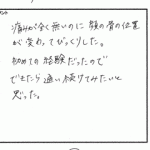 痛みが全く無いのに顔の骨の位置
が変わってびっくりした。
初めての経験だったので
できたら通い続けてみたいと
思った。